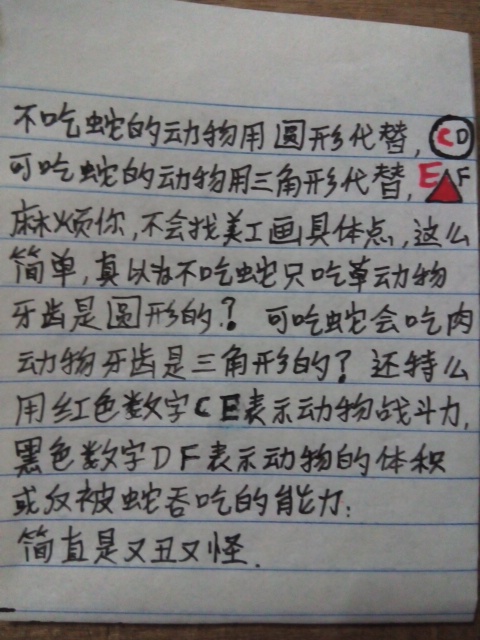 不吃蛇的动物用圆形代替，CD
可吃蛇的动物用三角形代替，EF
麻烦你，不会找美工画具体点，这么
简单，真以为不吃蛇只吃草动物
牙齿是圆形的？可吃蛇会吃肉
动物牙齿是三角形的？还特么
用红色数字CE表示动物战斗力，
黑色数字DF表示动物的体积
或反被蛇吞吃的能力：
简直是又丑又怪.